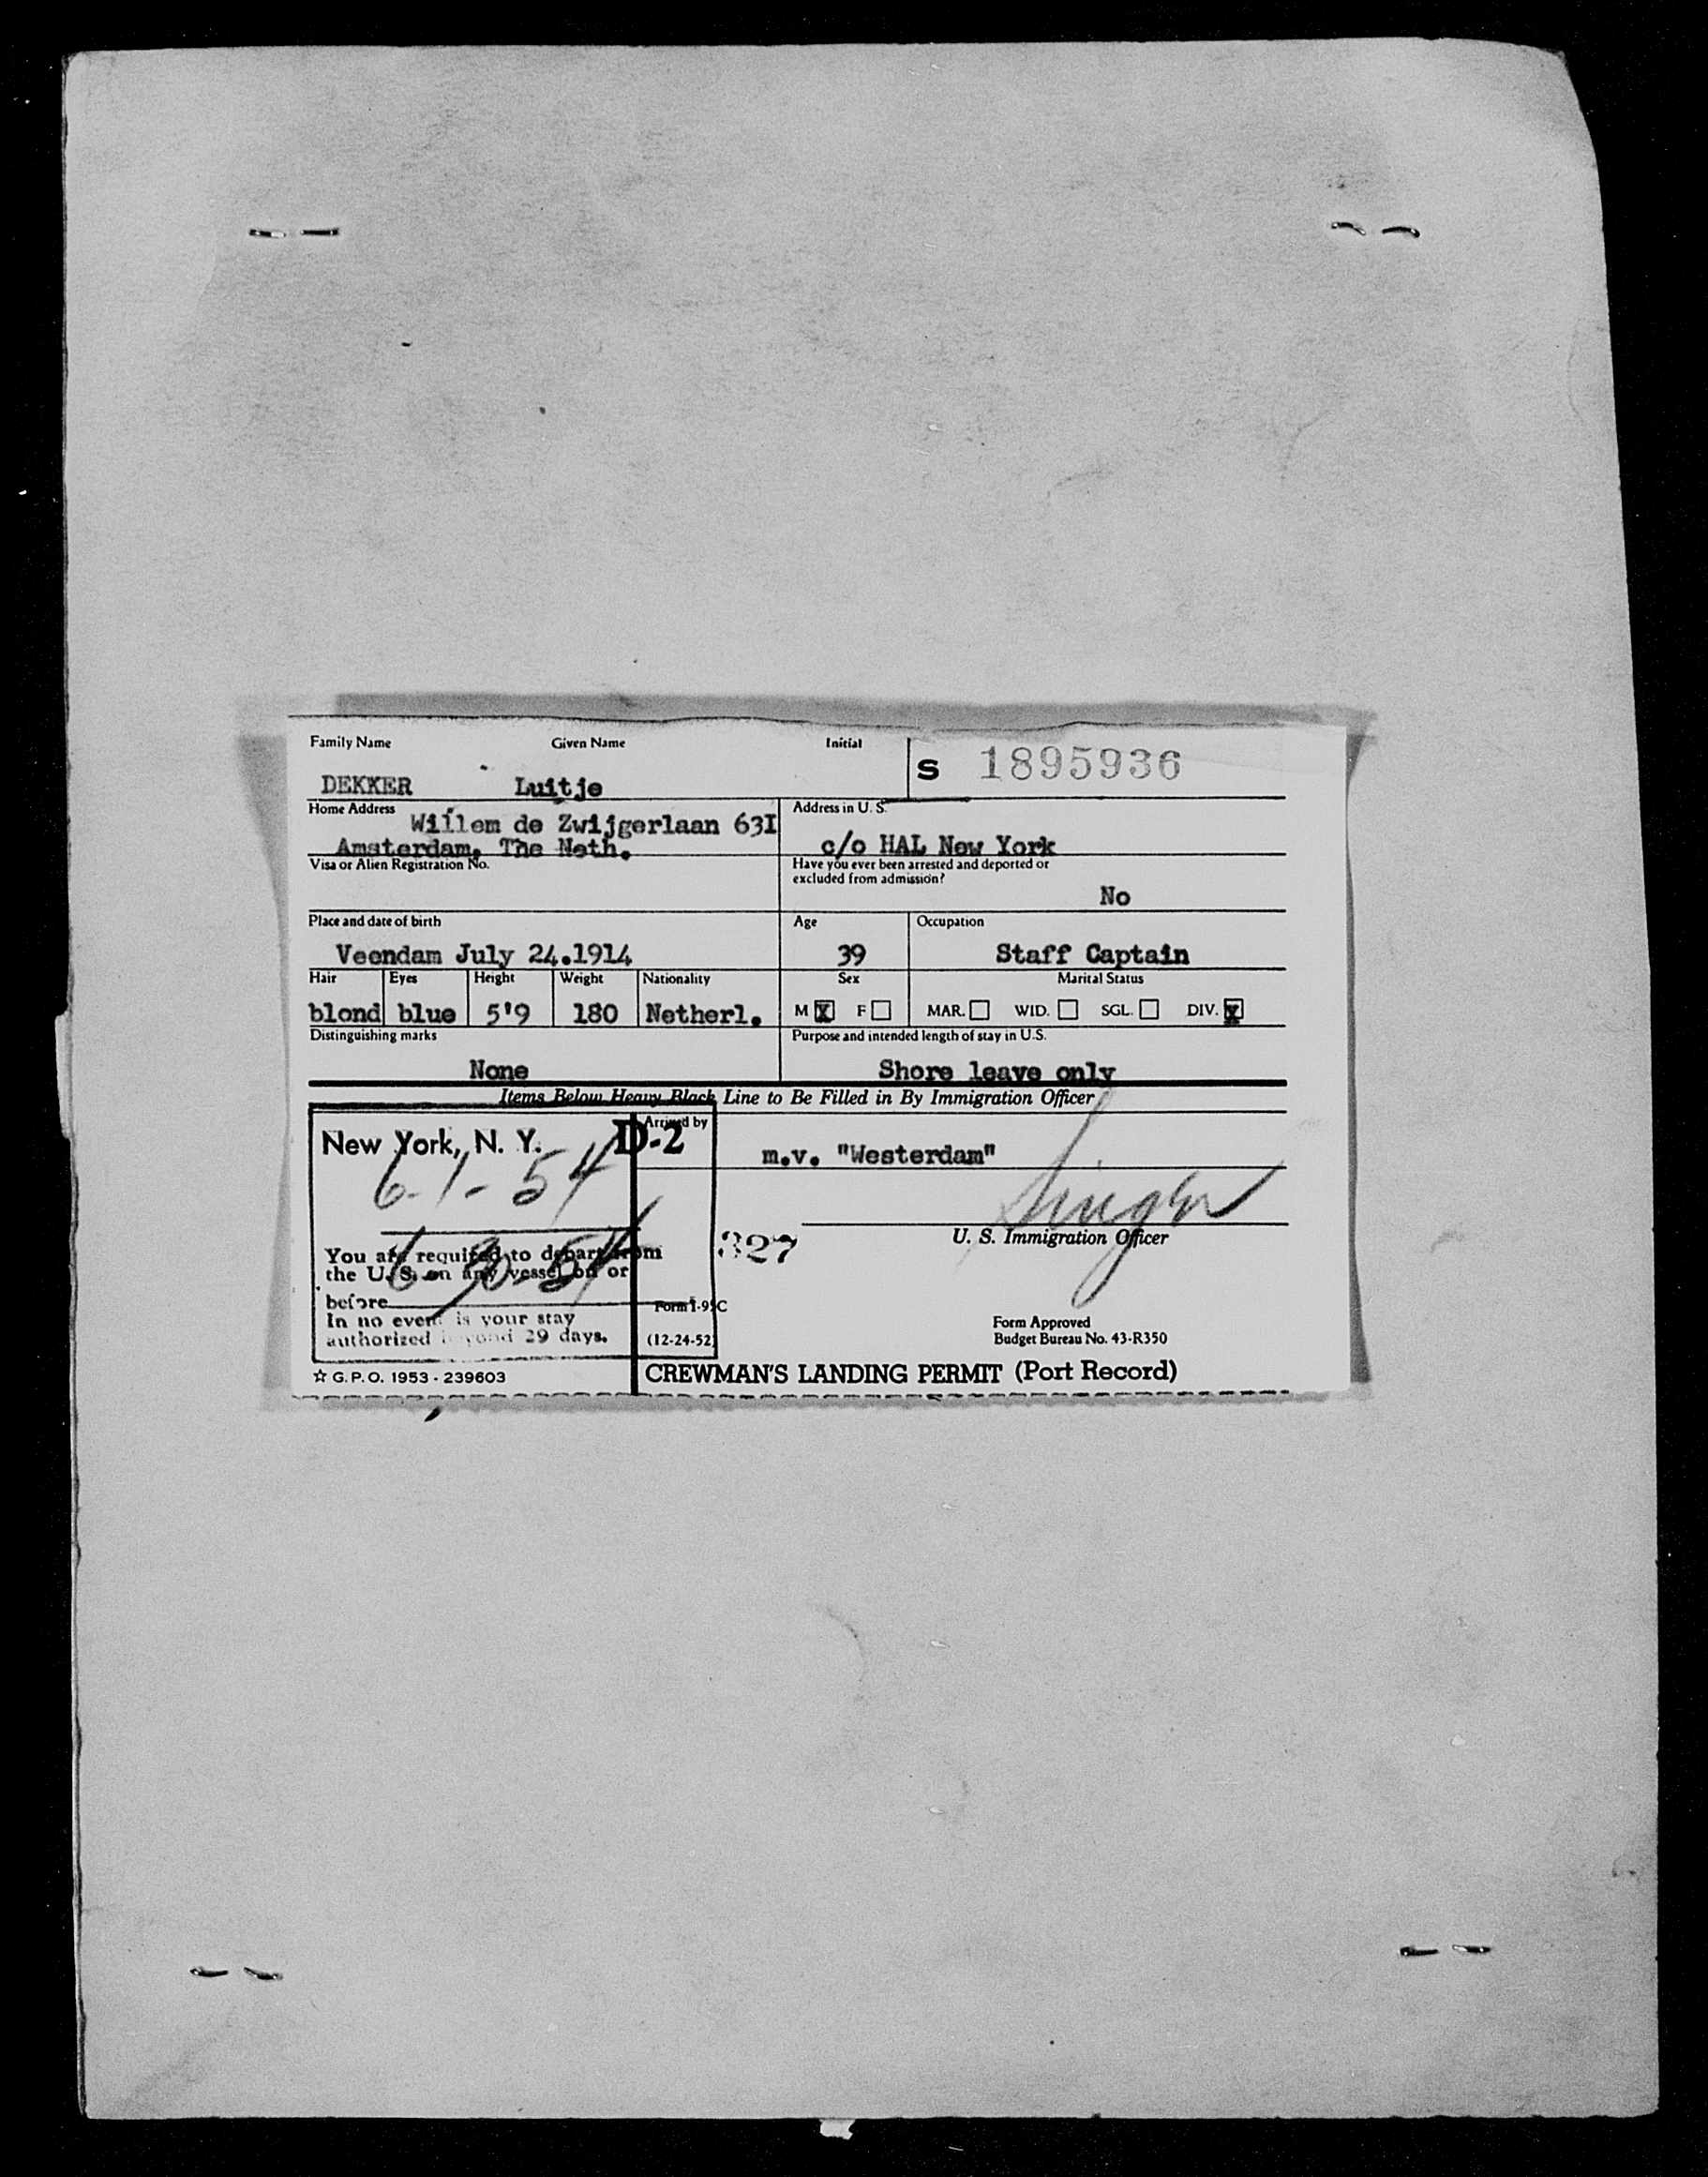 Family Name Given Name Initial
S 1895936
DEKKER Luitje
Home Address Address in U. S.
Willem de Zwijgerlaan 63I
Amsterdam, The Neth. c/o HAL New York
Visa or Alien Registration No. Have you ever been arrested and deported or
excluded from admission?
No
Place and date of birth Age Occupation
Veendam July 24.1914 39 Staff Captain
Hair Eyes Height Weight Nationality Sex Marital Status
blond blue 5'9 180 Netherl. M X F MAR. WID. SGL. DIV. X
Distinguishing marks Purpose and intended length of stay in U.S.
None Shore leave only
Items Below Heavy Black Line to Be Filled in By Immigration Officer
Arrived by
New York, N. Y. D-2
m.v. "Westerdam"
6-1-54
327
U. S. Immigration Officer
You are required to depart from
the U.S. on any vessel on or
before 6-30-54
Form I-95C
In no event is your stay
authorized beyond 29 days.
(12-24-52)
Form Approved
Budget Bureau No. 43-R350
☆ G.P.O. 1953 - 239603
CREWMAN'S LANDING PERMIT (Port Record)